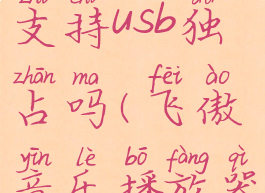 支持usb独
zhān ma fēi ào
占吗(飞傲
yīn lè bō fàng qì
音乐播放器